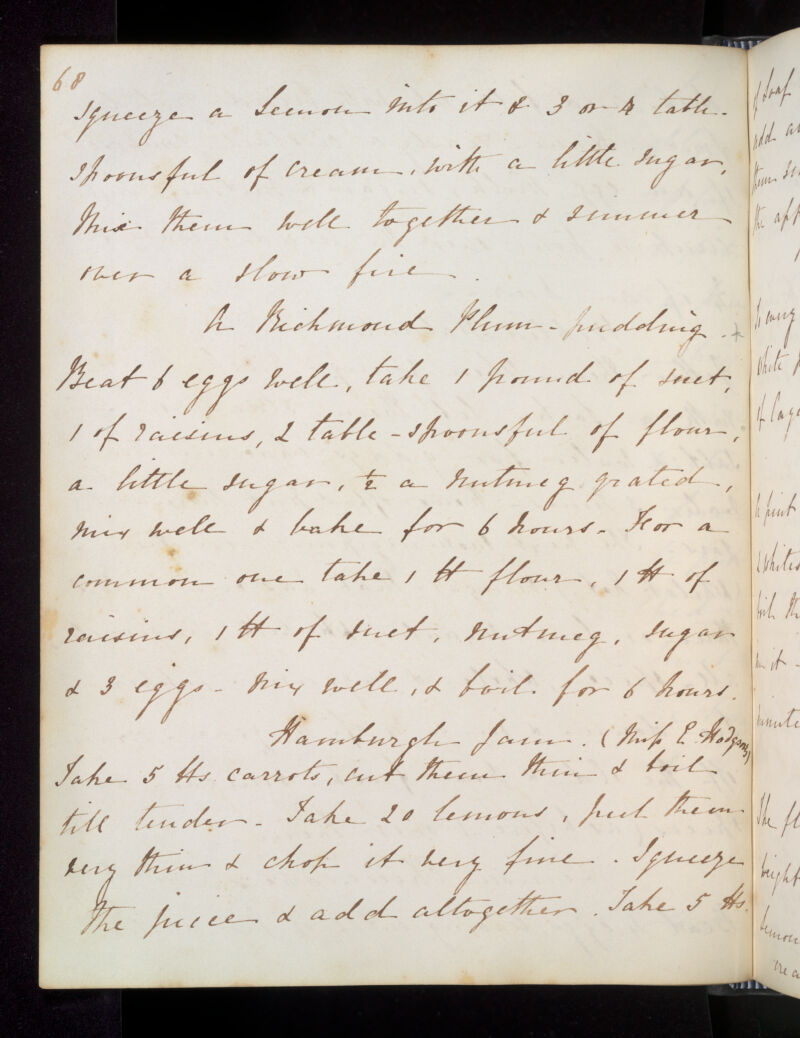 68
squeeze a Lemon into it & 3 or 4 table-
spoonsful of cream, with a little sugar,
Mix them well together & simmer
over a slow fire.
A Richmond Plum-pudding. +
Beat 6 eggs well, take 1 pound of suet,
1 of raisins, 2 table-spoonsful of flour,
a little sugar, ½ a nutmeg grated,
mix well & bake for 6 hours. For a
common one take 1 ℔ flour, 1 ℔ of
raisins, 1 ℔ of suet, nutmeg, sugar
& 3 eggs - mix well, & boil for 6 hours.
Hamburgh Jam. (Miss E. Hodgson's)
Take 5 ℔s carrots, cut them thin & boil
till tender - Take 20 lemons, peel them
very thin & chop it very fine. Squeeze
the juice & add altogether. Take 5 ℔s.
of loaf
add
them
the
white
of
A pint
2 whites
boil
it -
minute
The